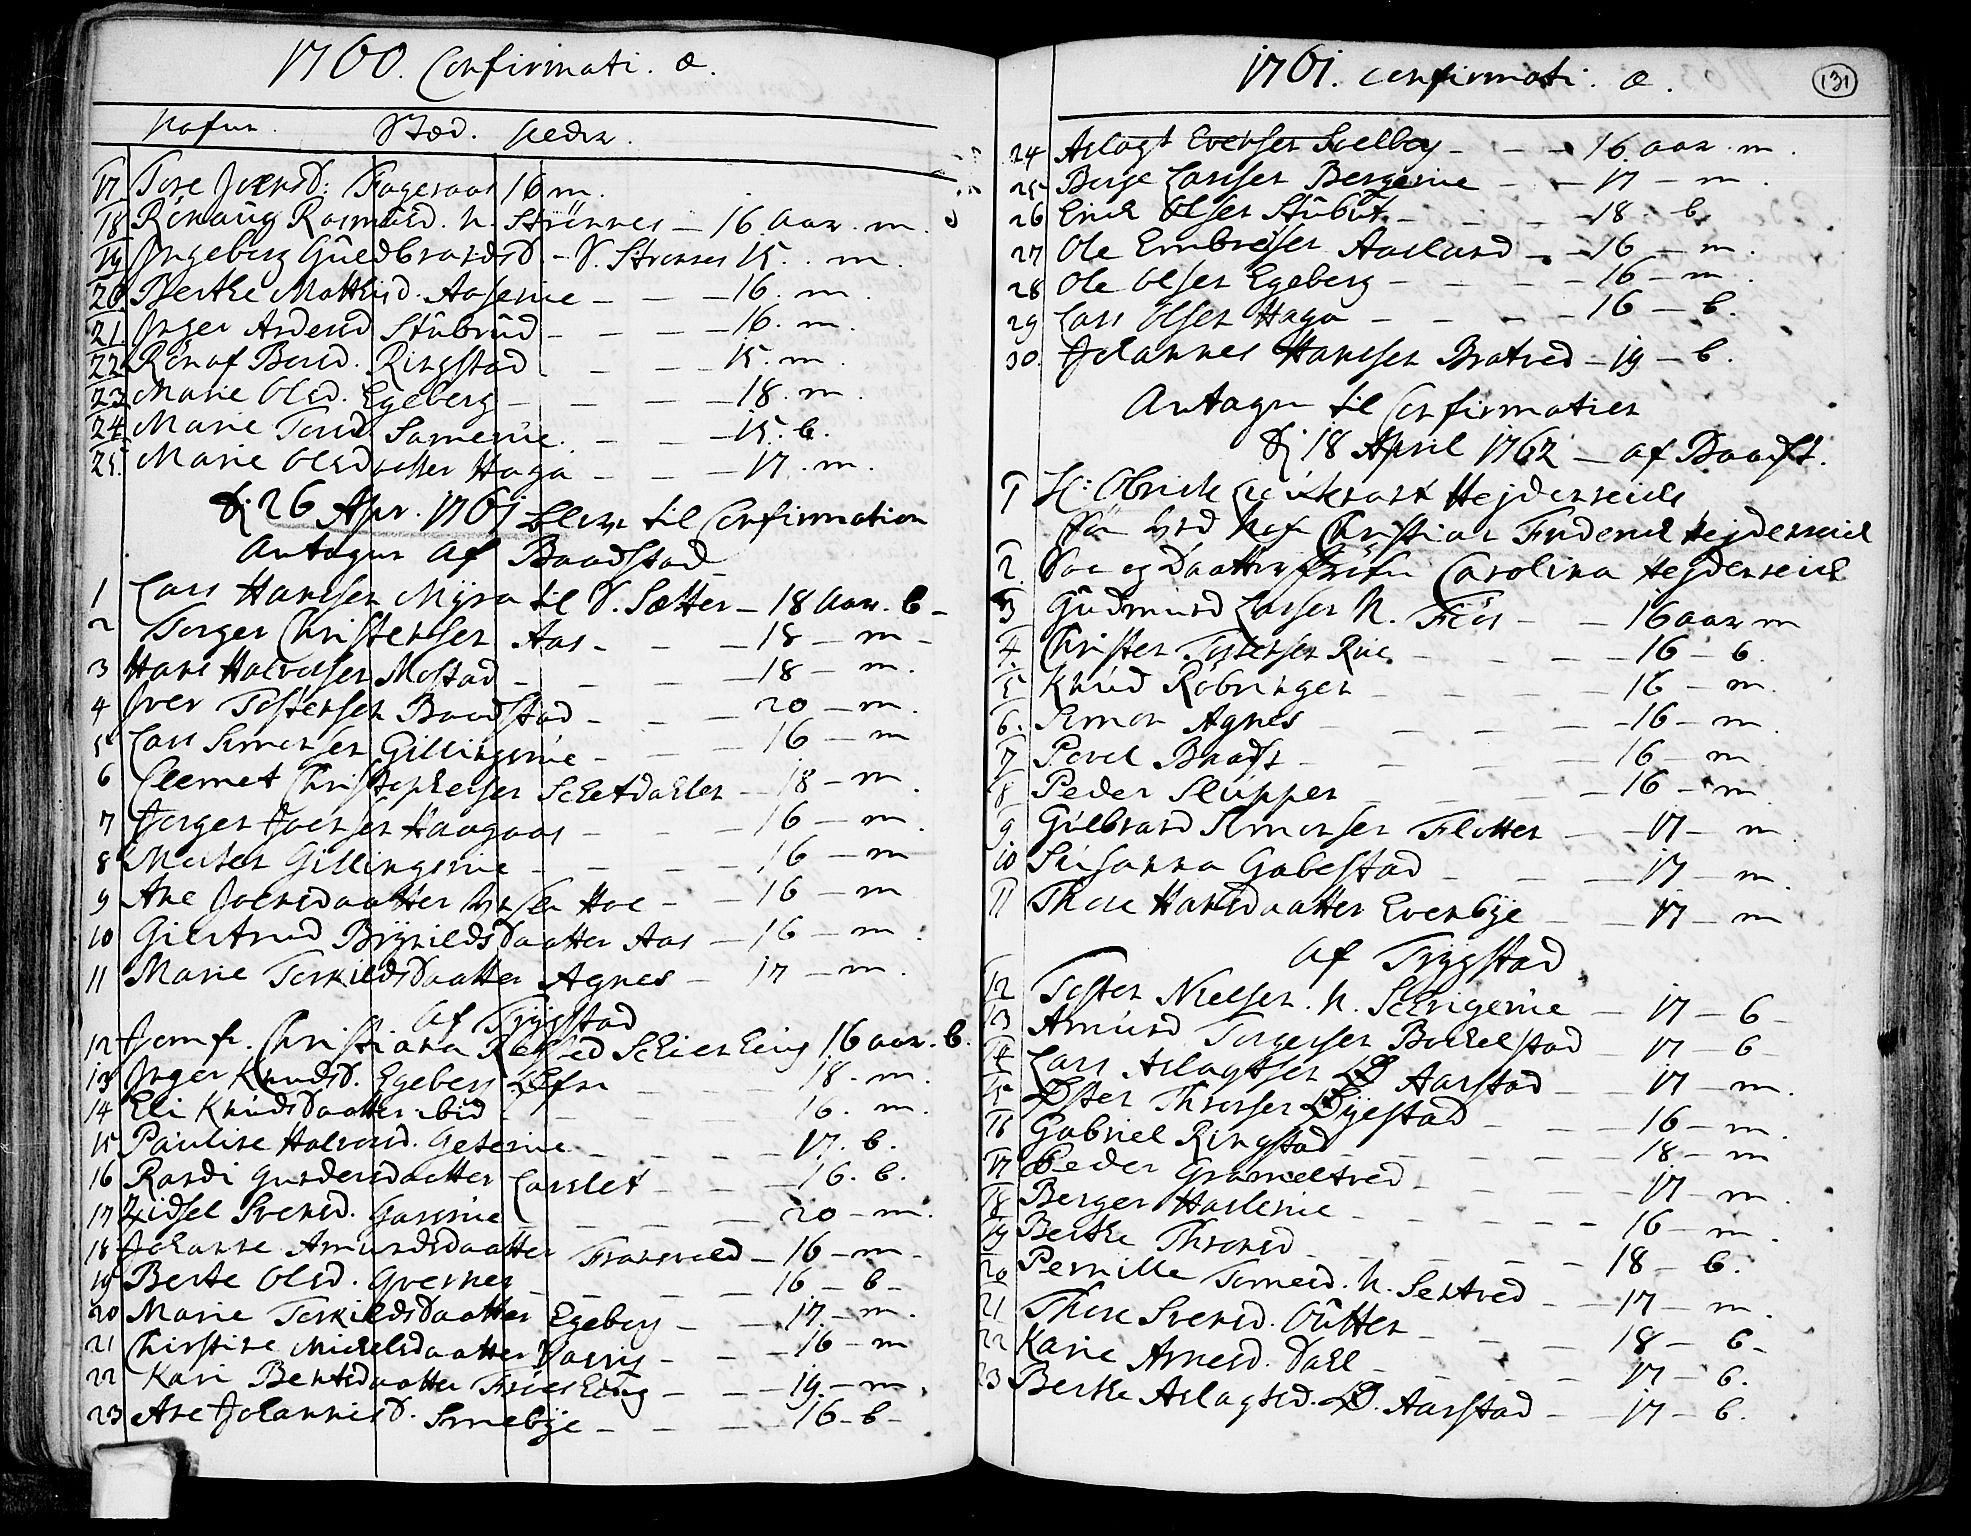 1760. Confirmati. æ.
Nafne. Stæd. Alder.
17 Tore Joensd: Fageraas 16 m.
18 Rönaug Rasmusd. N. Strønnes – 16 Aar. m.
19 Ingeborg Guldbrandsd – S. Strønnes 15. m.
20 Berthe Mathisd. Aaserue – – – 16. m.
21. Inger Andersd Stubrud – – – – 16. m.
22 Rönaf Bersd. Ringstad – – – 15. m.
23 Marie Olsd. Egeberg – – – – 18. m.
24 Marie Torsd. – – – 15. b.
25. Marie Olsdaatter Haga – – – 17. m.
d: 26 Apr. 1761 blev til Confirmation
Antagne af Baadstad
1 Lars Hansen Myra til S. Sætter – 18 Aar. b –
2 Torger Christensen Aas – – – 18 – m –
3 Hans Halvorsen Mostad – – – 18 – m.
4 Iver Tostensen Baadstad – – – 20 – m.
5 Lars Simensen Gillingsrue – – – 16 – m
6 Clemet Christophersen – 18 – m
7 Jørgen Joensen Haagaas – – – 16 – m.
8 Gillingsrue – – – 16 – m
9 Ane Joensdaatter Hoe – – 16 – m
10 Giertrud Brynildsdaatter Aas – 16 – m.
11 Marie Terkildsdaatter Agnes – 17 – m.
Af Trygstad
12 Jomfr. Christiana 16 aar. b.
13 Inger Knudsd. Egeberg – – 18. m.
14 Eli Knudsdaatter ibid – – – 16. m.
15 Pauline Halvorsd. – – – – 17. b.
16 Randi Gundersdaatter – – – 16. b.
17 Zidsel Svensd. – – – – 20 – m.
18 Johanne Amundsdaatter – 16 – m –
19 Berte Olsd. – – – – 16 – b –
20 Marie Terkildsdaatter Egeberg – – 17. – m.
21 Chirstine Mickelsdaatter – – – 16 – m
22 Kari Bentsdaatter – – – 19. – m.
23 Ane Johannisd. Smebye – – – 16 – b –
1761. Confirmati. æ.
131
24 Aslagt Evensen – – – 16. aar. m.
25 Børge Larssen Bergerue – – – 17 – m.
26 Erick Olsen Stubut – – – 18. b.
27 Ole Embretsen Aasland – – 16 – m.
28 Ole Olsen Egeberg – – – – 16 – m.
29 Lars Olsen Haga – – – – 16 – b.
30. Johannes Hansen Bratved – 19 – b.
Antagne til Confirmation
d: 18 April 1762 – af Baadst.
1 Hejdenreick
Christian Friderick Hejdenreick
2. Carolina Hejdenreick
3 Gudmund Larsen N. – – 16 aar m
4. Christen Tostensen Rue – – – 16 – b.
5 Knud Röbsingen – – – – 16 – m.
6. Simon Agnes – – – – 16 – m
7 Povel Baadst – – – – 16 – m.
8 Peder Slupper – – – – 16 – m
9 Gulbrand Simonsen Flatten – – 17 – m
10 Susanna Gabestad – – – 17 – m.
11 Thore Hansdaatter Evenbye – – 17 – m
Af Trygstad
12 Tosten Nielsen. N. – 17 – b –
13 Amund Torgersen Bockelstad – 17 – b –
14 Lars Aslagtsen Ø Aarstad – 17 – m.
15 Østen Thronsen – – – 16 – m.
16 Gabriel Ringstad – – – – 18 – m
17 Peder – – – – 17 – m.
18 Berger Haslerue – – – – 16 – m.
19 Berthe Thronsd – – – – 18 – b.
20 Pernille N. – – 17 – m.
21 Thore Svensd. – – – 18 – b –
22 Karie Arnesd. Dahl – – – 17 – b.
23 Berthe Aslagtsd. Ø. Aarstad – – 17 – b.